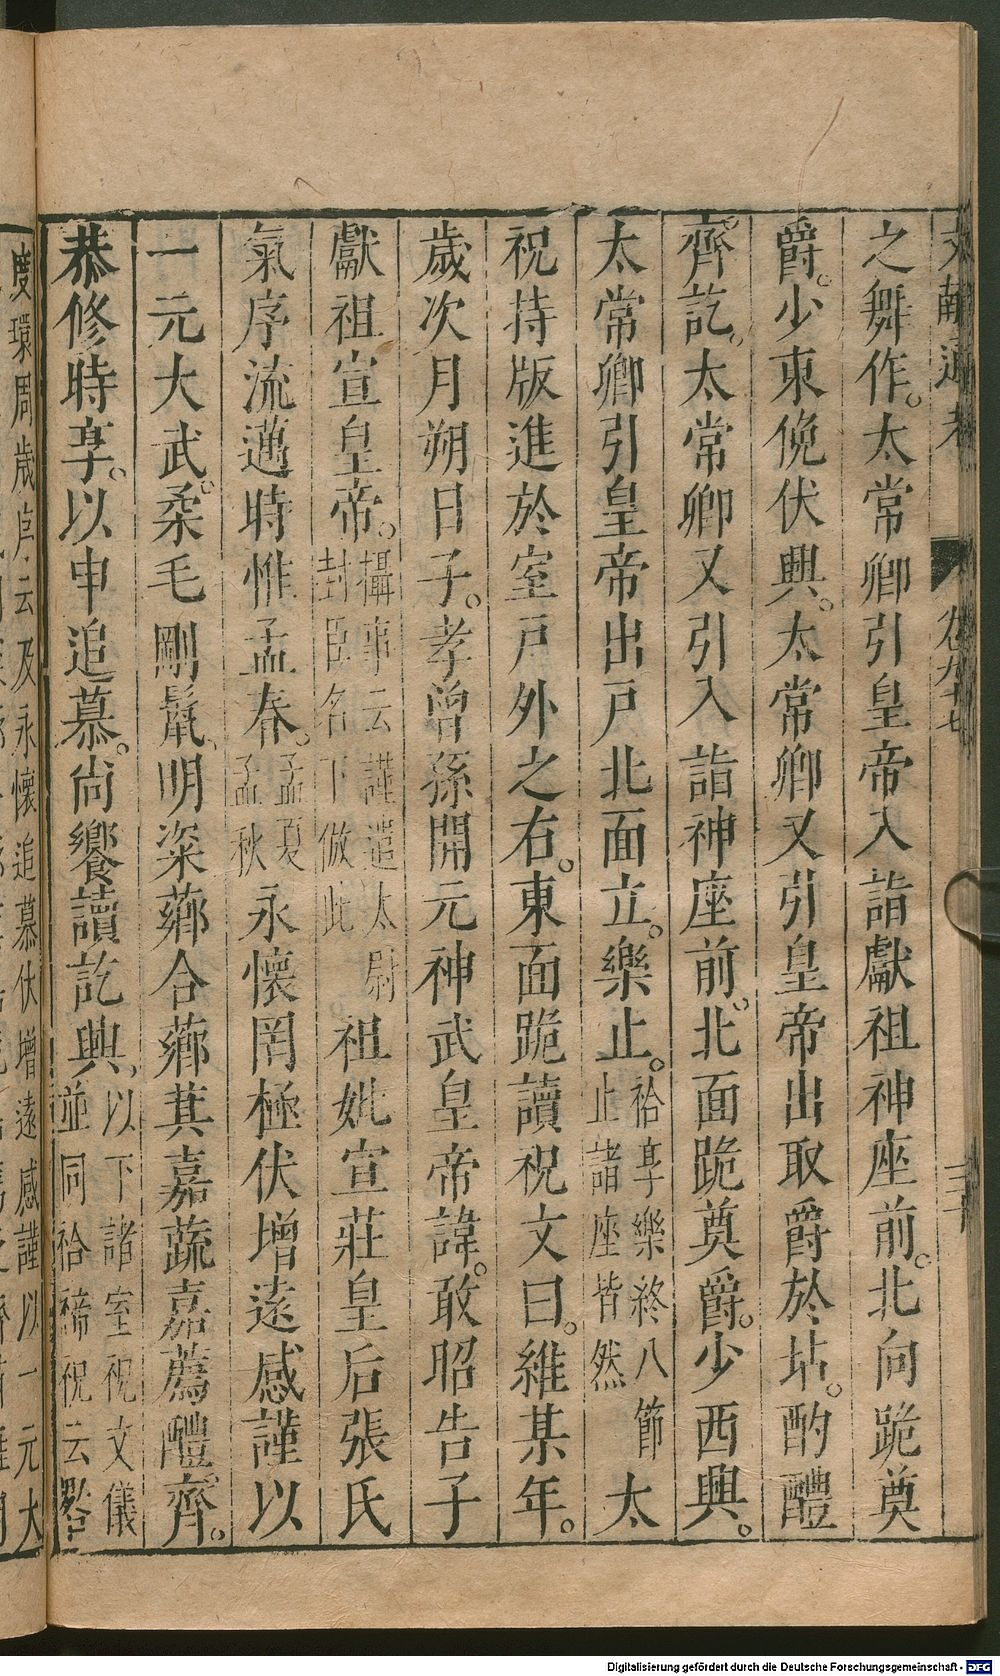 文獻通考 卷九十七
之舞作。太常卿引皇帝入詣獻祖神座前。北向跪奠
爵。少東俛伏興。太常卿又引皇帝出取爵於坫。酌醴
齊訖。太常卿又引入詣神座前。北面跪奠爵。少西興。
太常卿引皇帝出戸北面立。樂止。祫享樂終八節止諸座皆然太
祝持版進於室戸外之右。東面跪讀祝文曰。維某年。
歲次月朔日子。孝曾孫開元神武皇帝諱。敢昭告于
獻祖宣皇帝。攝事云謹遣太尉封臣名下倣此祖妣宣莊皇后張氏
氣序流邁時惟孟春。孟夏孟秋永懷罔極伏增遠感謹以
一元大武。柔毛剛鬛、明粢薌合薌萁嘉蔬嘉薦醴齊。
恭修時享。以申追慕。尚饗讀訖興、以下諸室祝文儀並同祫禘祝云
度環周歲
云及永懷追慕伏增遠感謹以一元大
Digitalisierung gefördert durch die Deutsche Forschungsgemeinschaft - DFG